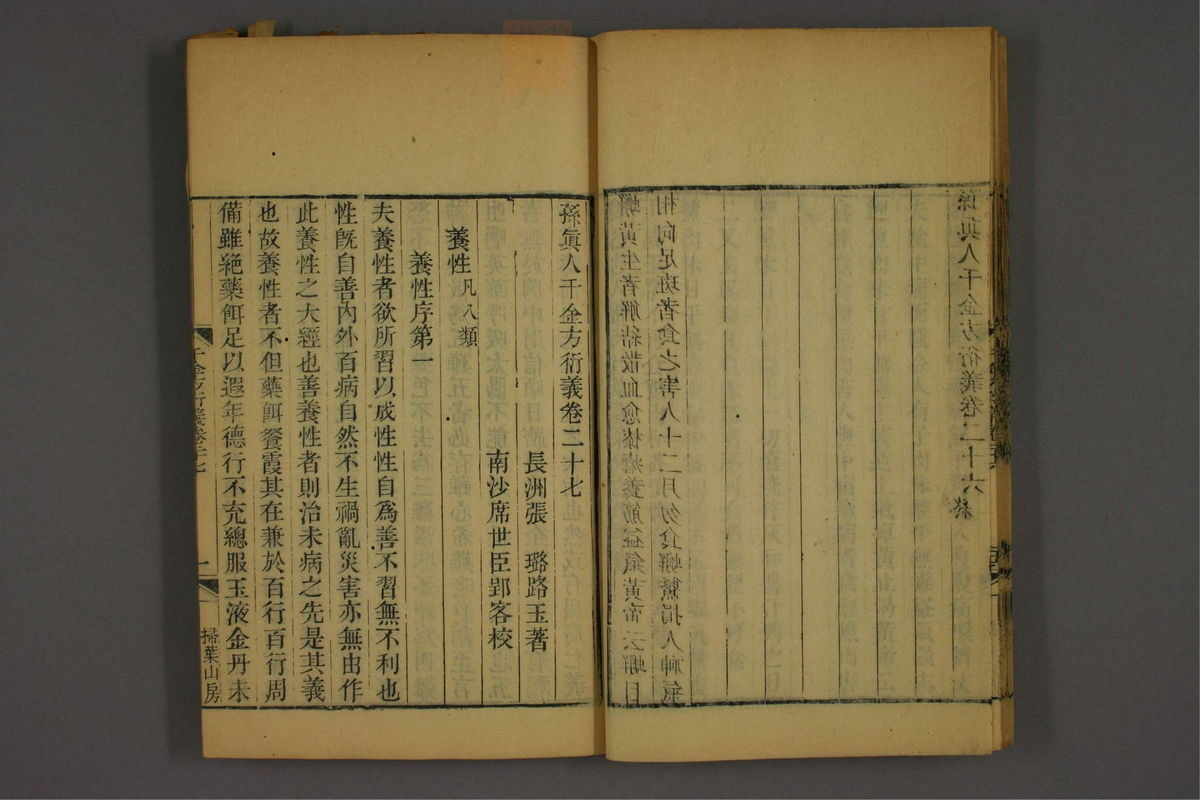 蟹黃生者解結散血愈漆瘡養筋益氣黃帝云蟹目
相向足斑者食之害人十二月勿食蟹鱉損人神氣
孫眞人千金方衍義卷二十六 終
孫眞人千金方衍義卷二十七
長洲張 璐路玉著
南沙席世臣郢客校
養性凡八類
養性序第一
夫養性者欲所習以成性性自爲善不習無不利也
性旣自善內外百病自然不生禍亂災害亦無由作
此養性之大經也善養性者則治未病之先是其義
也故養性者不但藥餌餐霞其在兼於百行百行周
備雖絶藥餌足以遐年德行不充總服玉液金丹未
千金方衍義卷二十七 一 掃葉山房